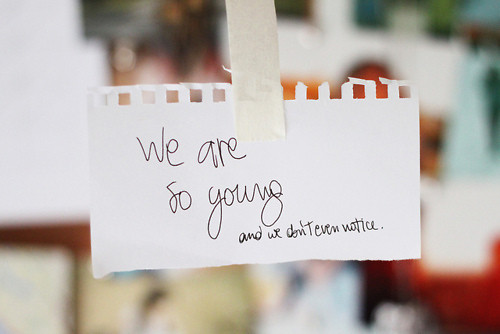 We are
so young
and we don't even notice.